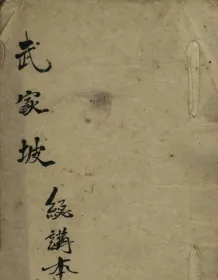 武家坡
総講本